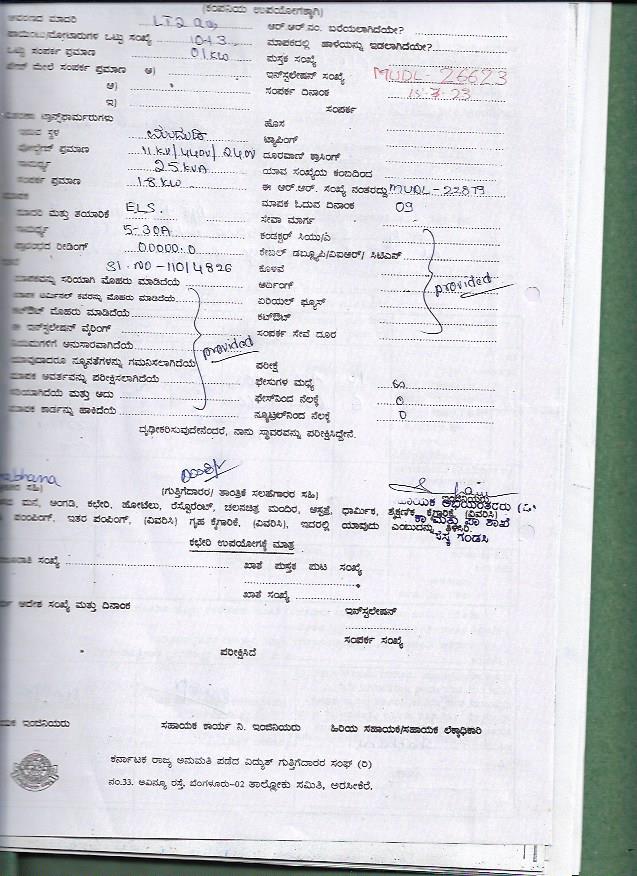 (ಕಂಪನಿಯ ಉಪಯೋಗಕ್ಕಾಗಿ)
ಮಾದರಿ LT2
ಒಟ್ಟು ಸಂಖ್ಯೆ 10+3
ಒಟ್ಟು ಸಂಪರ್ಕ ಪ್ರಮಾಣ 01 KW
ಮೇಲೆ ಸಂಪರ್ಕ ಪ್ರಮಾಣ ಅ)
ಆ)
ಇ)
ಸ್ಥಳ
ಪ್ರಮಾಣ 11 KV/440V/240V
25 KVA
ಸಂಪರ್ಕ ಪ್ರಮಾಣ 1.8 KW
ಮಾದರಿ ಮತ್ತು ತಯಾರಿಕೆ ELS.
5-30A
ರೀಡಿಂಗ್ 00000.0
Sl. NO - 11014826
ಮಾಪಕವನ್ನು ಸರಿಯಾಗಿ ಮೊಹರು ಮಾಡಿದೆಯೆ
ಟರ್ಮಿನಲ್ ಕವರನ್ನು ಮೊಹರು ಮಾಡಿದೆಯೆ
ಕಟ್‌ಔಟ್ ಮೊಹರು ಮಾಡಿದೆಯೆ
ಈ ಇನ್ಸ್ಟಲೇಷನ್ ವೈರಿಂಗ್
ನಿಯಮಗಳಿಗೆ ಅನುಸಾರವಾಗಿದೆಯೆ
ಯಾವುದಾದರೂ ನ್ಯೂನತೆಗಳನ್ನು ಗಮನಿಸಲಾಗಿದೆಯೆ
ಮಾಪಕ ಆವರ್ತವನ್ನು ಪರೀಕ್ಷಿಸಲಾಗಿದೆಯೆ
ಸರಿಯಾಗಿದೆಯೆ ಮತ್ತು ಅದು
ಮಾಪಕ ಕಾರ್ಡನ್ನು ಹಾಕಿದೆಯೆ
provided
ಆರ್.ಆರ್.ನಂ. ಬರೆಯಲಾಗಿದೆಯೇ?
ಮಾಪಕದಲ್ಲಿ ಹಾಳೆಯನ್ನು ಇಡಲಾಗಿದೆಯೇ?
ಪುಸ್ತಕ ಸಂಖ್ಯೆ
ಇನ್‌ಸ್ಟಲೇಷನ್ ಸಂಖ್ಯೆ MUDL-26623
ಸಂಪರ್ಕ ದಿನಾಂಕ
ಸಂಪರ್ಕ
ಹೊಸ
ಟ್ಯಾಪಿಂಗ್
ದೂರವಾಣಿ ಕ್ರಾಸಿಂಗ್
ಯಾವ ಸಂಖ್ಯೆಯ ಕಂಬದಿಂದ
ಈ ಆರ್.ಆರ್. ಸಂಖ್ಯೆ ನಂತರದ್ದು
ಮಾಪಕ ಓದುವ ದಿನಾಂಕ 09
ಸೇವಾ ಮಾರ್ಗ
ಕಂಡಕ್ಟರ್ ಸಿಯು/ಎ
ಕೇಬಲ್ ಡಬ್ಲ್ಯೂಪಿ/ವಿಐಆರ್/ ಸಿಟಿಎಸ್
ಕೊಳವೆ
ಅರ್ಥಿಂಗ್
ಏರಿಯಲ್ ಫ್ಯೂಸ್
ಕಟ್‌ಔಟ್
ಸಂಪರ್ಕ ಸೇವೆ ದೂರ
provided
ಪರೀಕ್ಷೆ
ಫೇಸುಗಳ ಮಧ್ಯೆ
ಫೇಸ್‌ನಿಂದ ನೆಲಕ್ಕೆ 0
ನ್ಯೂಟ್ರಲ್‌ನಿಂದ ನೆಲಕ್ಕೆ 0
ದೃಢೀಕರಿಸುವುದೇನೆಂದರೆ, ನಾನು ಸ್ಥಾವರವನ್ನು ಪರೀಕ್ಷಿಸಿದ್ದೇನೆ.
ಸಹಿ) (ಗುತ್ತಿಗೆದಾರರ/ ತಾಂತ್ರಿಕ ಸಲಹೆಗಾರರ ಸಹಿ) ಇಂಜಿನಿಯರು
ಮನೆ, ಅಂಗಡಿ, ಕಛೇರಿ, ಹೋಟೆಲು, ರೆಸ್ಟೊರೆಂಟ್, ಚಲನಚಿತ್ರ ಮಂದಿರ, ಆಸ್ಪತ್ರೆ, ಧಾರ್ಮಿಕ, ಶೈಕ್ಷಣಿಕ, ಕೈಗಾರಿಕೆ, (ವಿವರಿಸಿ)
ಪಂಪಿಂಗ್, ಇತರ ಪಂಪಿಂಗ್, (ವಿವರಿಸಿ) ಗೃಹ ಕೈಗಾರಿಕೆ, (ವಿವರಿಸಿ), ಇದರಲ್ಲಿ ಯಾವುದು ಎಂಬುದನ್ನು ತಿಳಿಸಿರಿ.
ಗಂಡಸಿ
ಕಛೇರಿ ಉಪಯೋಗಕ್ಕೆ ಮಾತ್ರ
ಸಂಖ್ಯೆ ಖಾತೆ ಪುಸ್ತಕ ಪುಟ ಸಂಖ್ಯೆ
ಖಾತೆ ಸಂಖ್ಯೆ
ಆದೇಶ ಸಂಖ್ಯೆ ಮತ್ತು ದಿನಾಂಕ ಇನ್‌ಸ್ಟಲೇಷನ್
ಸಂಪರ್ಕ ಸಂಖ್ಯೆ
ಪರೀಕ್ಷಿಸಿದೆ
ಇಂಜಿನಿಯರು ಸಹಾಯಕ ಕಾರ್ಯ ನಿ. ಇಂಜಿನಿಯರು ಹಿರಿಯ ಸಹಾಯಕ/ಸಹಾಯಕ ಲೆಕ್ಕಾಧಿಕಾರಿ
ಕರ್ನಾಟಕ ರಾಜ್ಯ ಅನುಮತಿ ಪಡೆದ ವಿದ್ಯುತ್ ಗುತ್ತಿಗೆದಾರರ ಸಂಘ (ರಿ)
ನಂ.33. ಅವಿನ್ಯೂ ರಸ್ತೆ, ಬೆಂಗಳೂರು-02 ತಾಲ್ಲೋಕು ಸಮಿತಿ, ಅರಸೀಕೆರೆ.